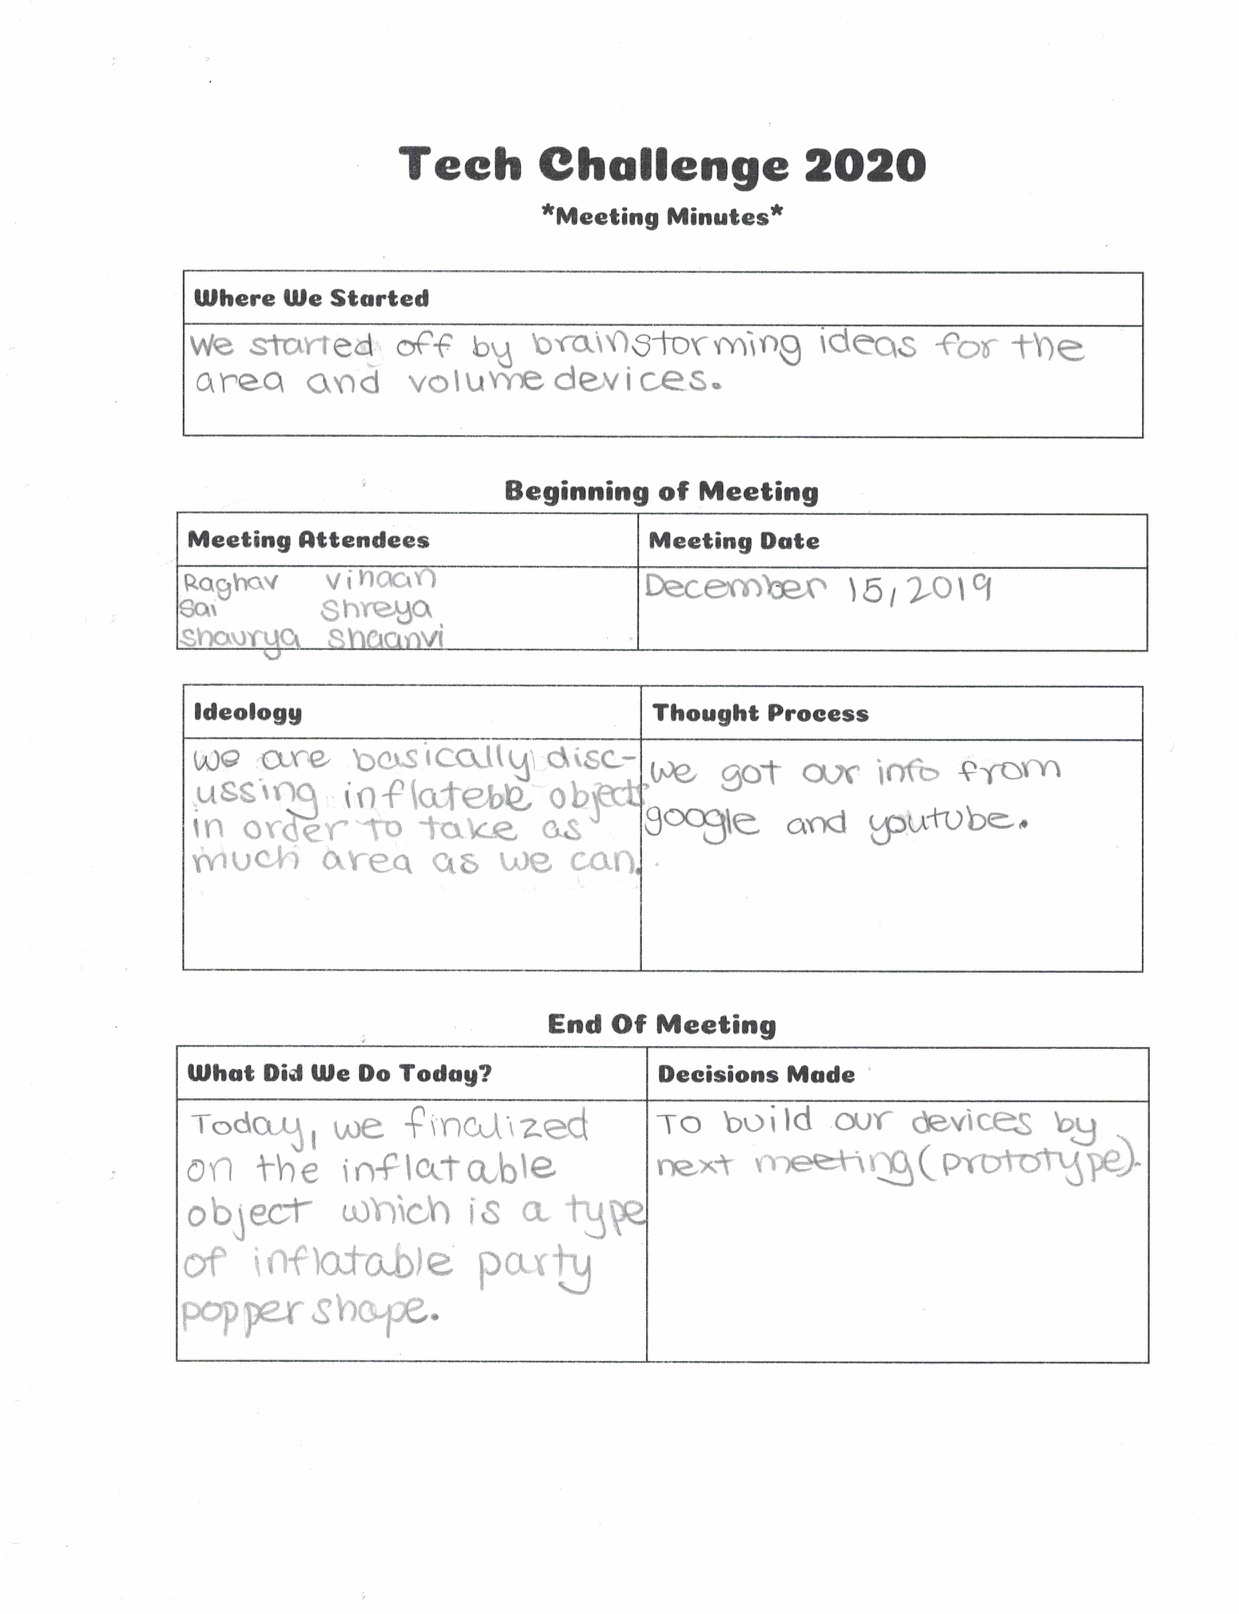 Tech Challenge 2020
*Meeting Minutes*
Where We Started
We started off by brainstorming ideas for the
area and volume devices.
Beginning of Meeting
Meeting Attendees
Meeting Date
Raghav Vihaan
Sai Shreya
Shaurya Shaanvi
December 15, 2019
Ideology
Thought Process
We are basically disc-
ussing inflateble objects
in order to take as
much area as we can.
We got our info from
google and youtube.
End Of Meeting
What Did We Do Today?
Decisions Made
Today, we finalized
on the inflatable
object which is a type
of inflatable party
popper shape.
To build our devices by
next meeting (prototype).